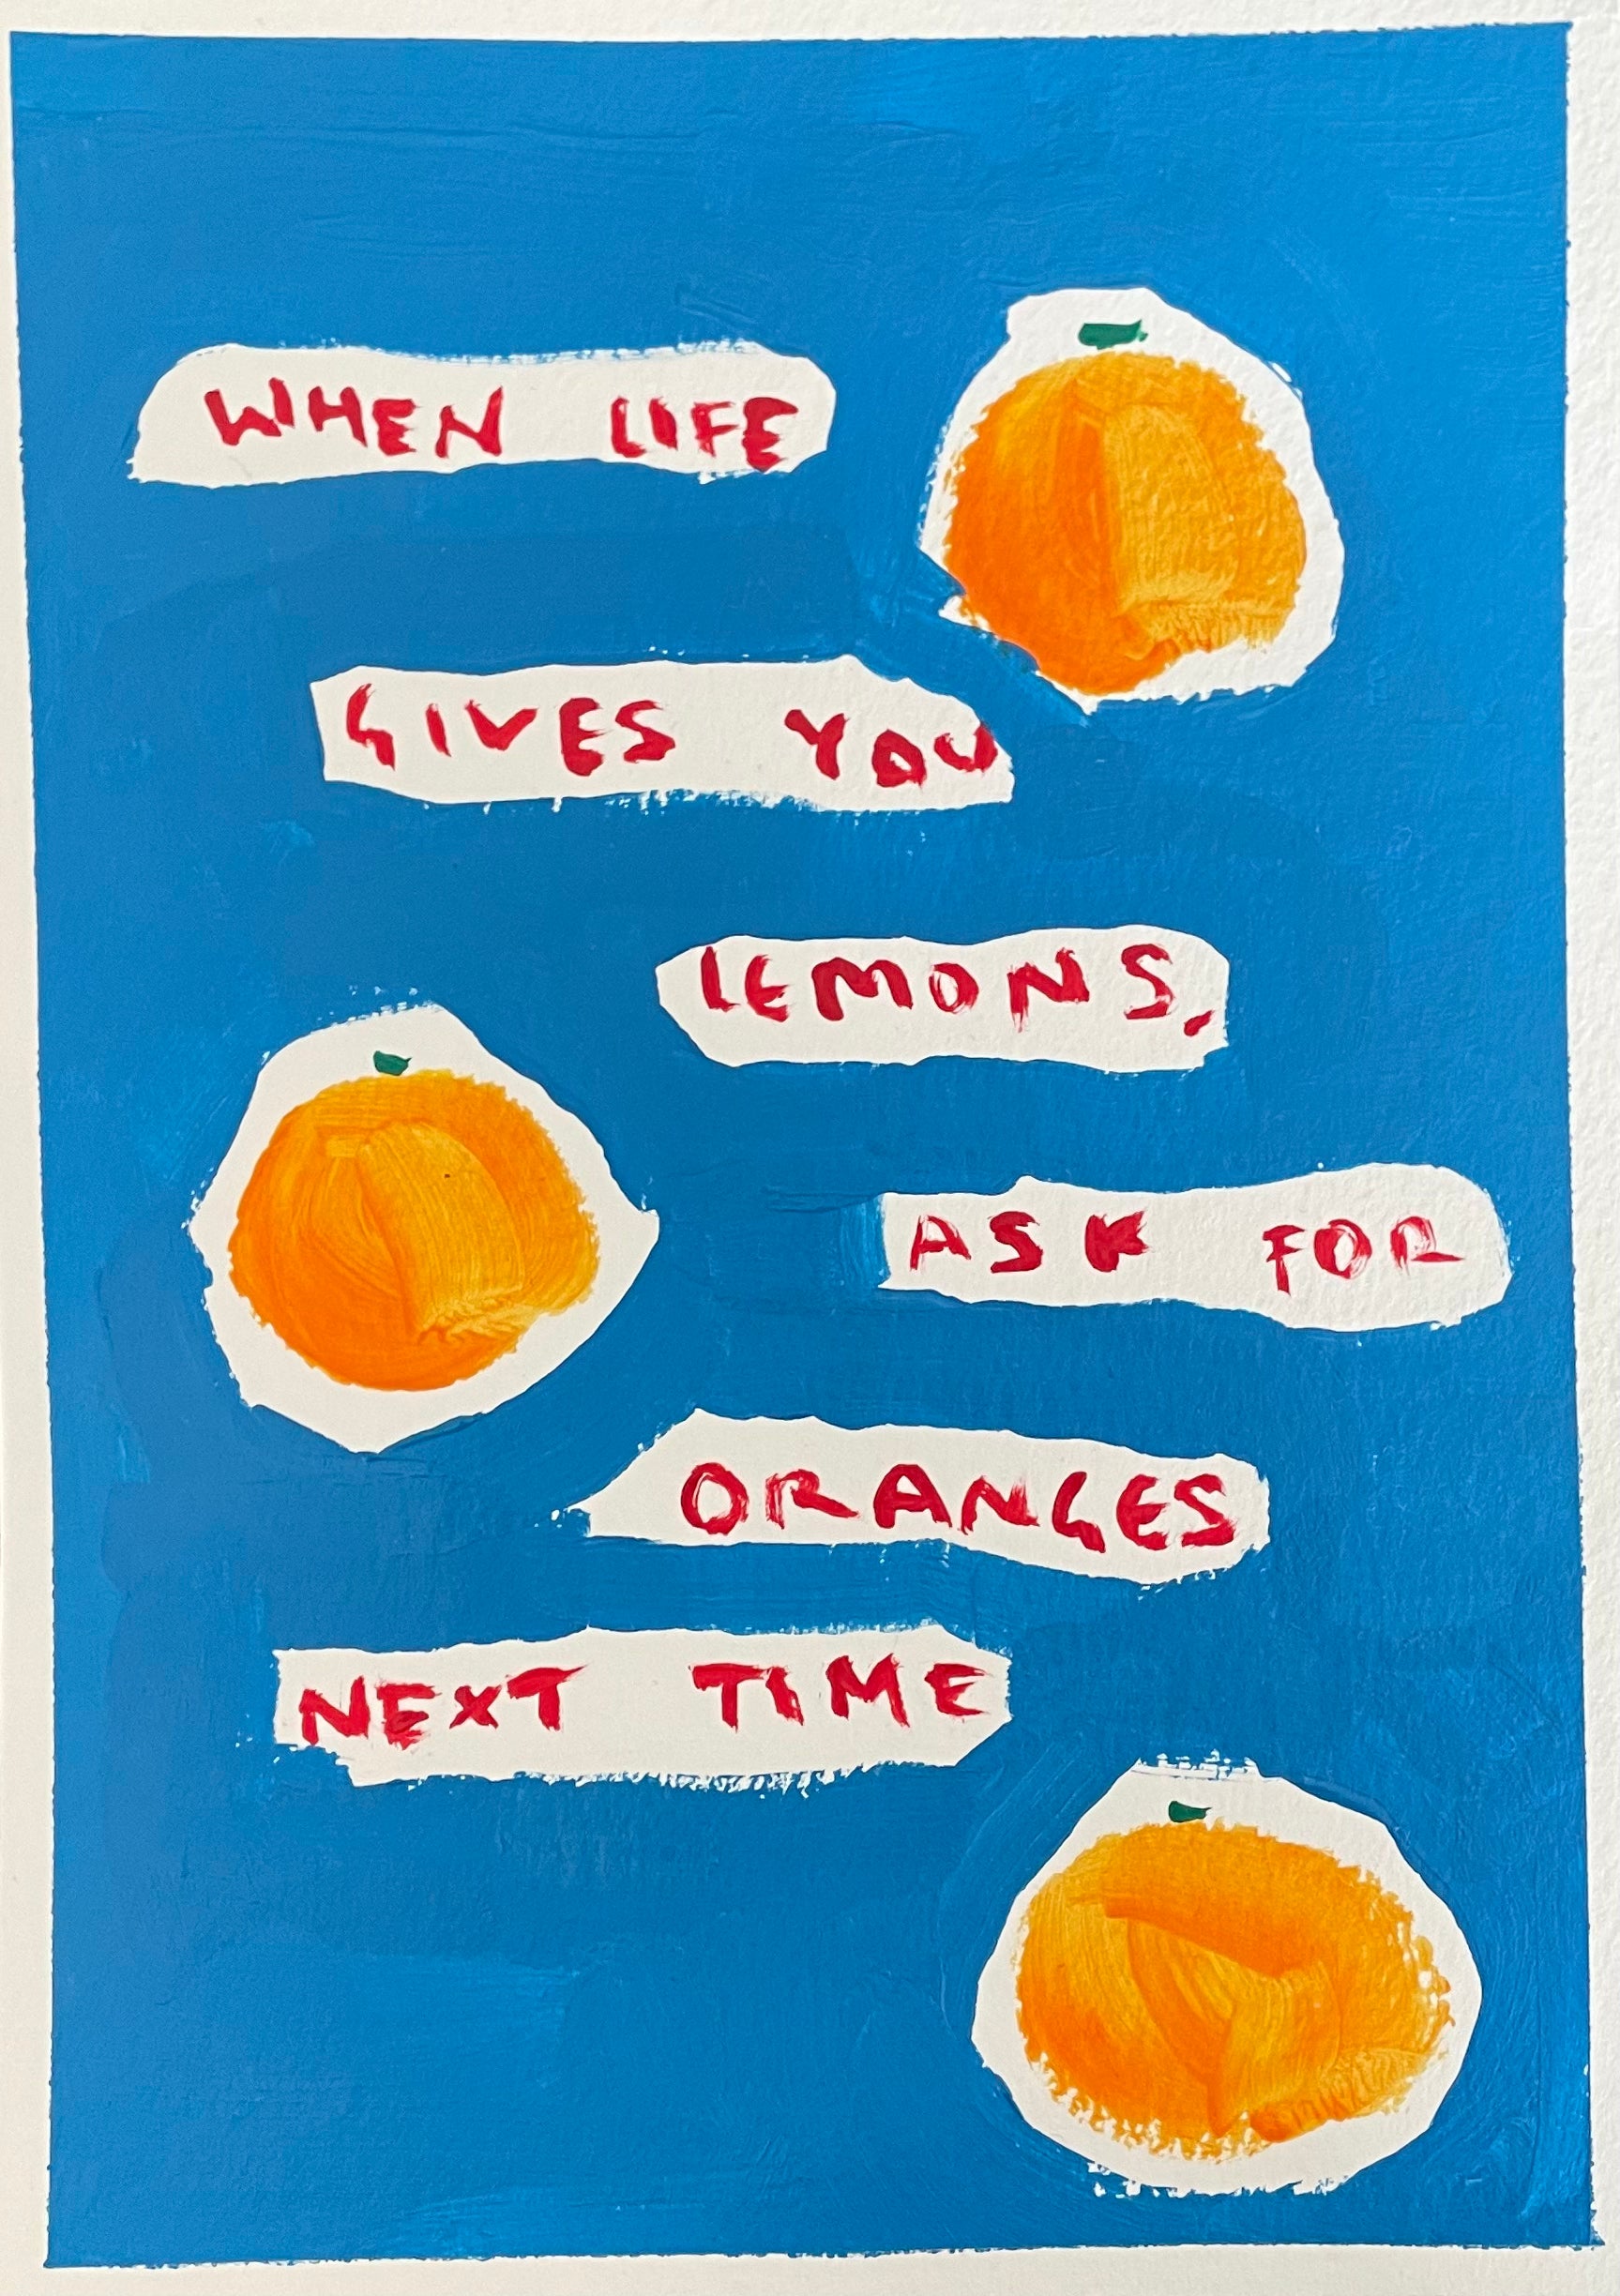 WHEN LIFE
GIVES YOU
LEMONS,
ASK FOR
ORANGES
NEXT TIME